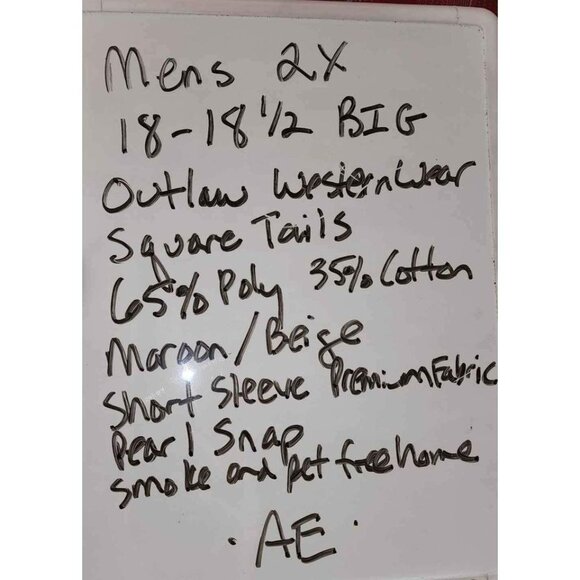 Mens 2X
18-18 1/2 BIG
Outlaw Western Wear
Square Tails
65% Poly 35% Cotton
Maroon/Beige
Short Sleeve Premium Fabric
Pearl Snap
Smoke and pet free home
·AE·